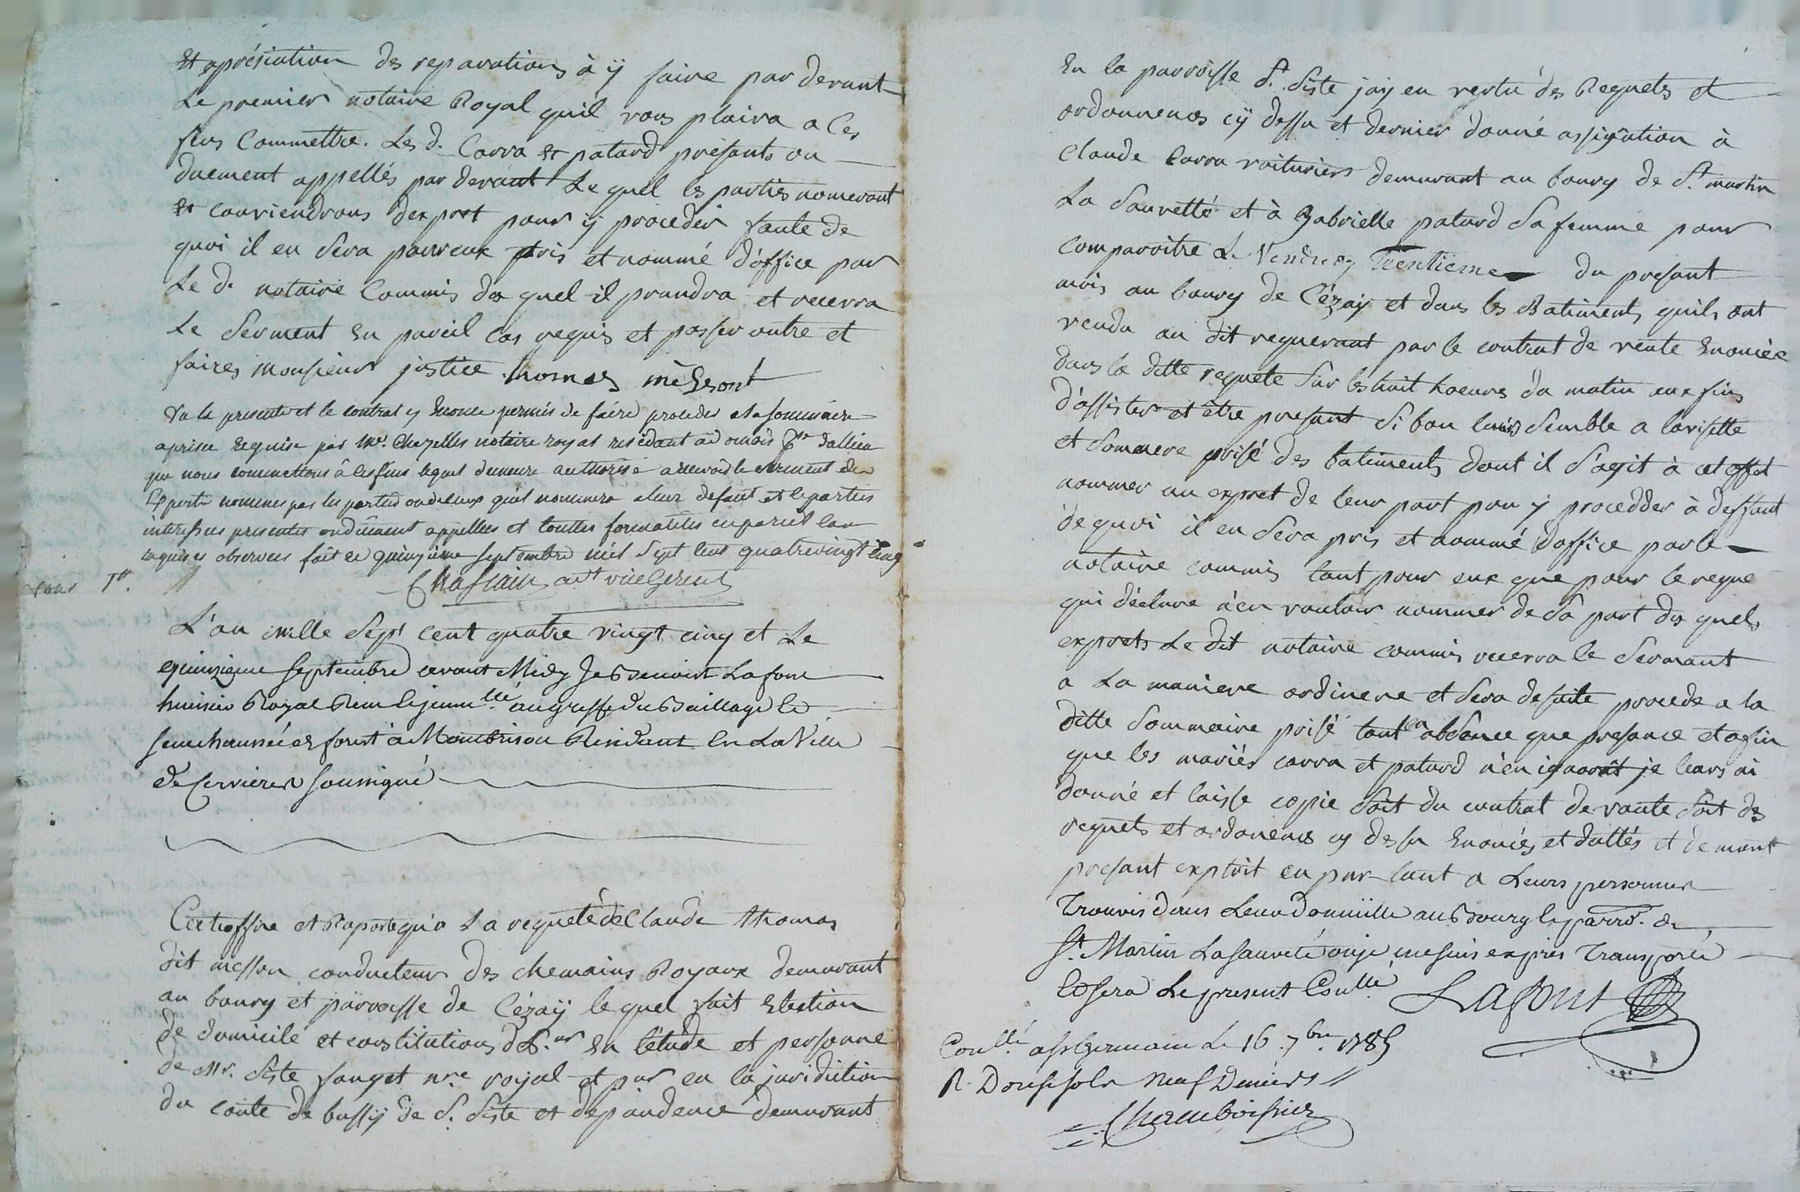 Et apréciation des reparations à ÿ faire par devant
Le premier notaire Royal quil vous plaira a Ces
fins Commettre. Les d. Carra et patard presants ou
duement appellés par devant Le quel les parties nomeront
et conviendrons dexpert pour ÿ proceder faute de
quoi il en sera pris et nommé d'office par
Le d. notaire Commis des quel il prandra et recevra
Le Serment En pareil Cas requis et passer outre et
faires Monsieur justice. thomas
Vu la presente et le contrat y Enoncé permis de faire proceder a la sommaire
aprise requise par Mr. Chazelles notaire royal residant
que nous commettons à ces fins lequel demeure authorisé a recevoir le serment des
Experts nommés par les parties ou de ceux quil nommera a leur defaut et les parties
interessées presentes ou dûment appellées et touttes formalités en pareil cas
requises observées fait ce quinzieme septembre mil sept cent quatrevingt cinq
L'an mille Sept cent quatre vingt cinq et Le
quinzieme septembre avant Midy Je Benoist Lafont
huissier Royal au greffe du Baillage et
senechaussée de forest à Montbrison Residant En La Ville
de Cervieres soussigné
Certiffie et Raporte qu'a La requete de Claude thomas
dit messon conducteur des chemains Royaux demurant
au bourg et parroisse de Cézaÿ le quel fait Election
de domicile et constitutions d. P.ur En l'étude et personne
de Mr. Siste fauget nre. royal et pur en la juridiction
du conte de bussÿ de St. Siste et dépandence demurant
En la parroisse St. Siste jay en vertu des Requete et
ordonnences cÿ dessu et dernier donné assignation à
Claude Carra voituriers demurant au bourg de St. martin
La Sauvetté et à Gabrielle patard Sa femme pour
comparoitre Le Vendredy Trentieme du presant
mois au bourg de Cézay et dans les Batiments quils ont
vendu au dit requerant par le contrat de vente Enoncée
dans la ditte requéte Sur les huit hoeures du matin aux fins
d'assister et être presant Si bon leurs Semble a la
et Sommere prisé des batiments dont il S'agit à cet effet
nommer un expret de leur part pour y procedder à deffaut
de quoi il en Sera pris et nommé d'office par le
notaire commis tant pour eux que pour le reque
qui déclare n'en vouloir nommer de Sa part des quels
exprets Le dit notaire commis recevra le Sermant
a La maniere ordinere et Sera desuite procede a la
ditte Sommaire prisé tant en absance que presance et afin
que les mariés carra et patard n'en ignorât je leurs ai
donné et laisse copie Soit du contrat de vante Soit des
requete et ordonences cy dessu Enoncés et dattés et de mont
presant exploit en parlant a Leurs personnes
Trouvés dans Leur domicille au Bourg et parro. de
St. Martin La Sauveté ou je me suis exprés Transporté
Et sera Le present Conllé. LAfont
Conllé. a St Germain Le 16. 7bre. 1785
R. Douse sols neuf Deniers